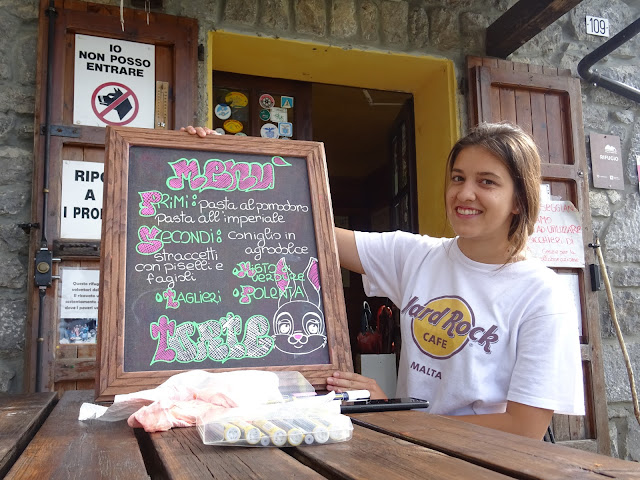 IO
NON POSSO
ENTRARE
109
MENU'
PRIMI: PASTA AL POMODORO
PASTA ALL'IMPERIALE
SECONDI: CONIGLIO IN
AGRODOLCE
STRACCETTI
CON PISELLI E
FAGIOLI
MISTO
VERDURE
TAGLIERI
POLENTA
TORTE
RIPO
A
I PROD
RIFUGIO
Hard Rock
CAFE
MALTA